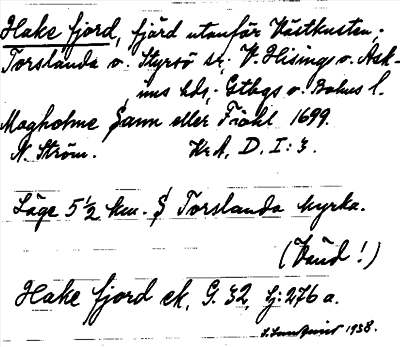 Hake fjord, fjärd utanför Västkusten;
Torslanda o. Styrsö sr, V. Hisings o. Ask-
ims hdr, Gtbgs o. Bohus l.
Magholme Sann eller Fiöhl 1699.
N. Ström. Kr A, D. I: 3.
Läge 5 1/2 km. S Torslanda kyrka.
(Vänd!)
Hake fjord ek. G. 32, Lj. 276 a.
1938.